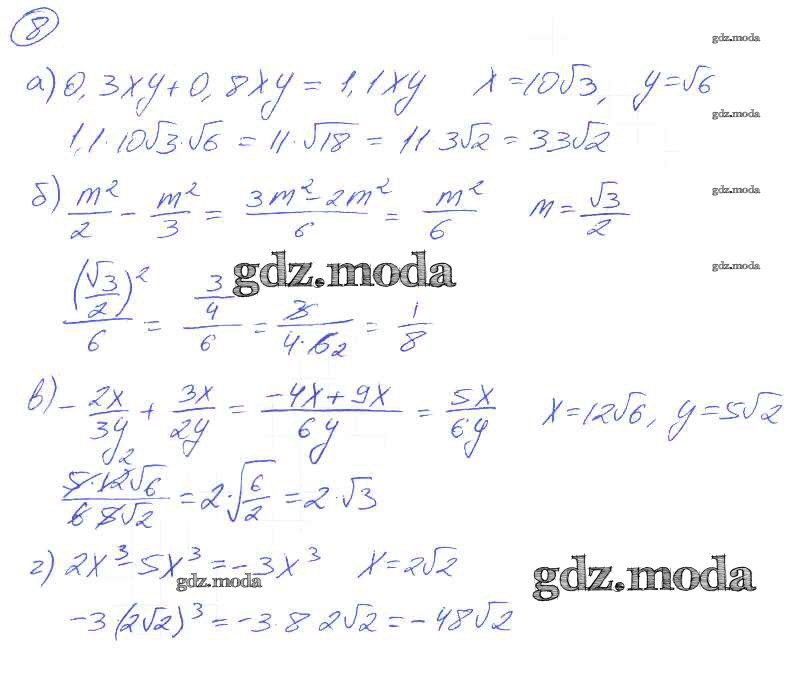 8
gdz.moda
а) 0,3xy + 0,8xy = 1,1xy   x = 10√3, y = √6
gdz.moda
1,1·10√3·√6 = 11·√18 = 11 3√2 = 33√2
gdz.moda
б) m²/2 - m²/3 = (3m² - 2m²)/6 = m²/6   m = √3/2
gdz.moda
gdz.moda
(√3/2)²/6 = (3/4)/6 = 3/(4·6 2) = 1/8
в) -2x/3y + 3x/2y = (-4x + 9x)/6y = 5x/6y   x = 12√6, y = 5√2
2
5·12√6/(6 5√2) = 2·√(6/2) = 2·√3
г) 2x³ - 5x³ = -3x³   x = 2√2
gdz.moda
gdz.moda
-3(2√2)³ = -3·8 2√2 = -48√2